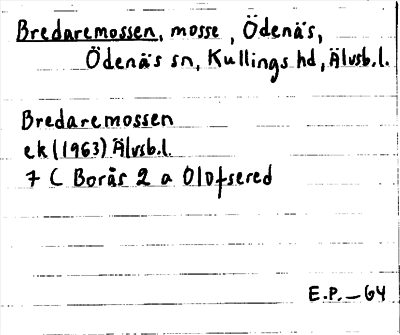 Bredaremossen, mosse, Ödenäs,
Ödenäs sn, Kullings hd, Älvsb.l.
Bredaremossen
ek (1963) Älvsb.l.
7 C Borås 2 a Olofsered
E.P. – 64